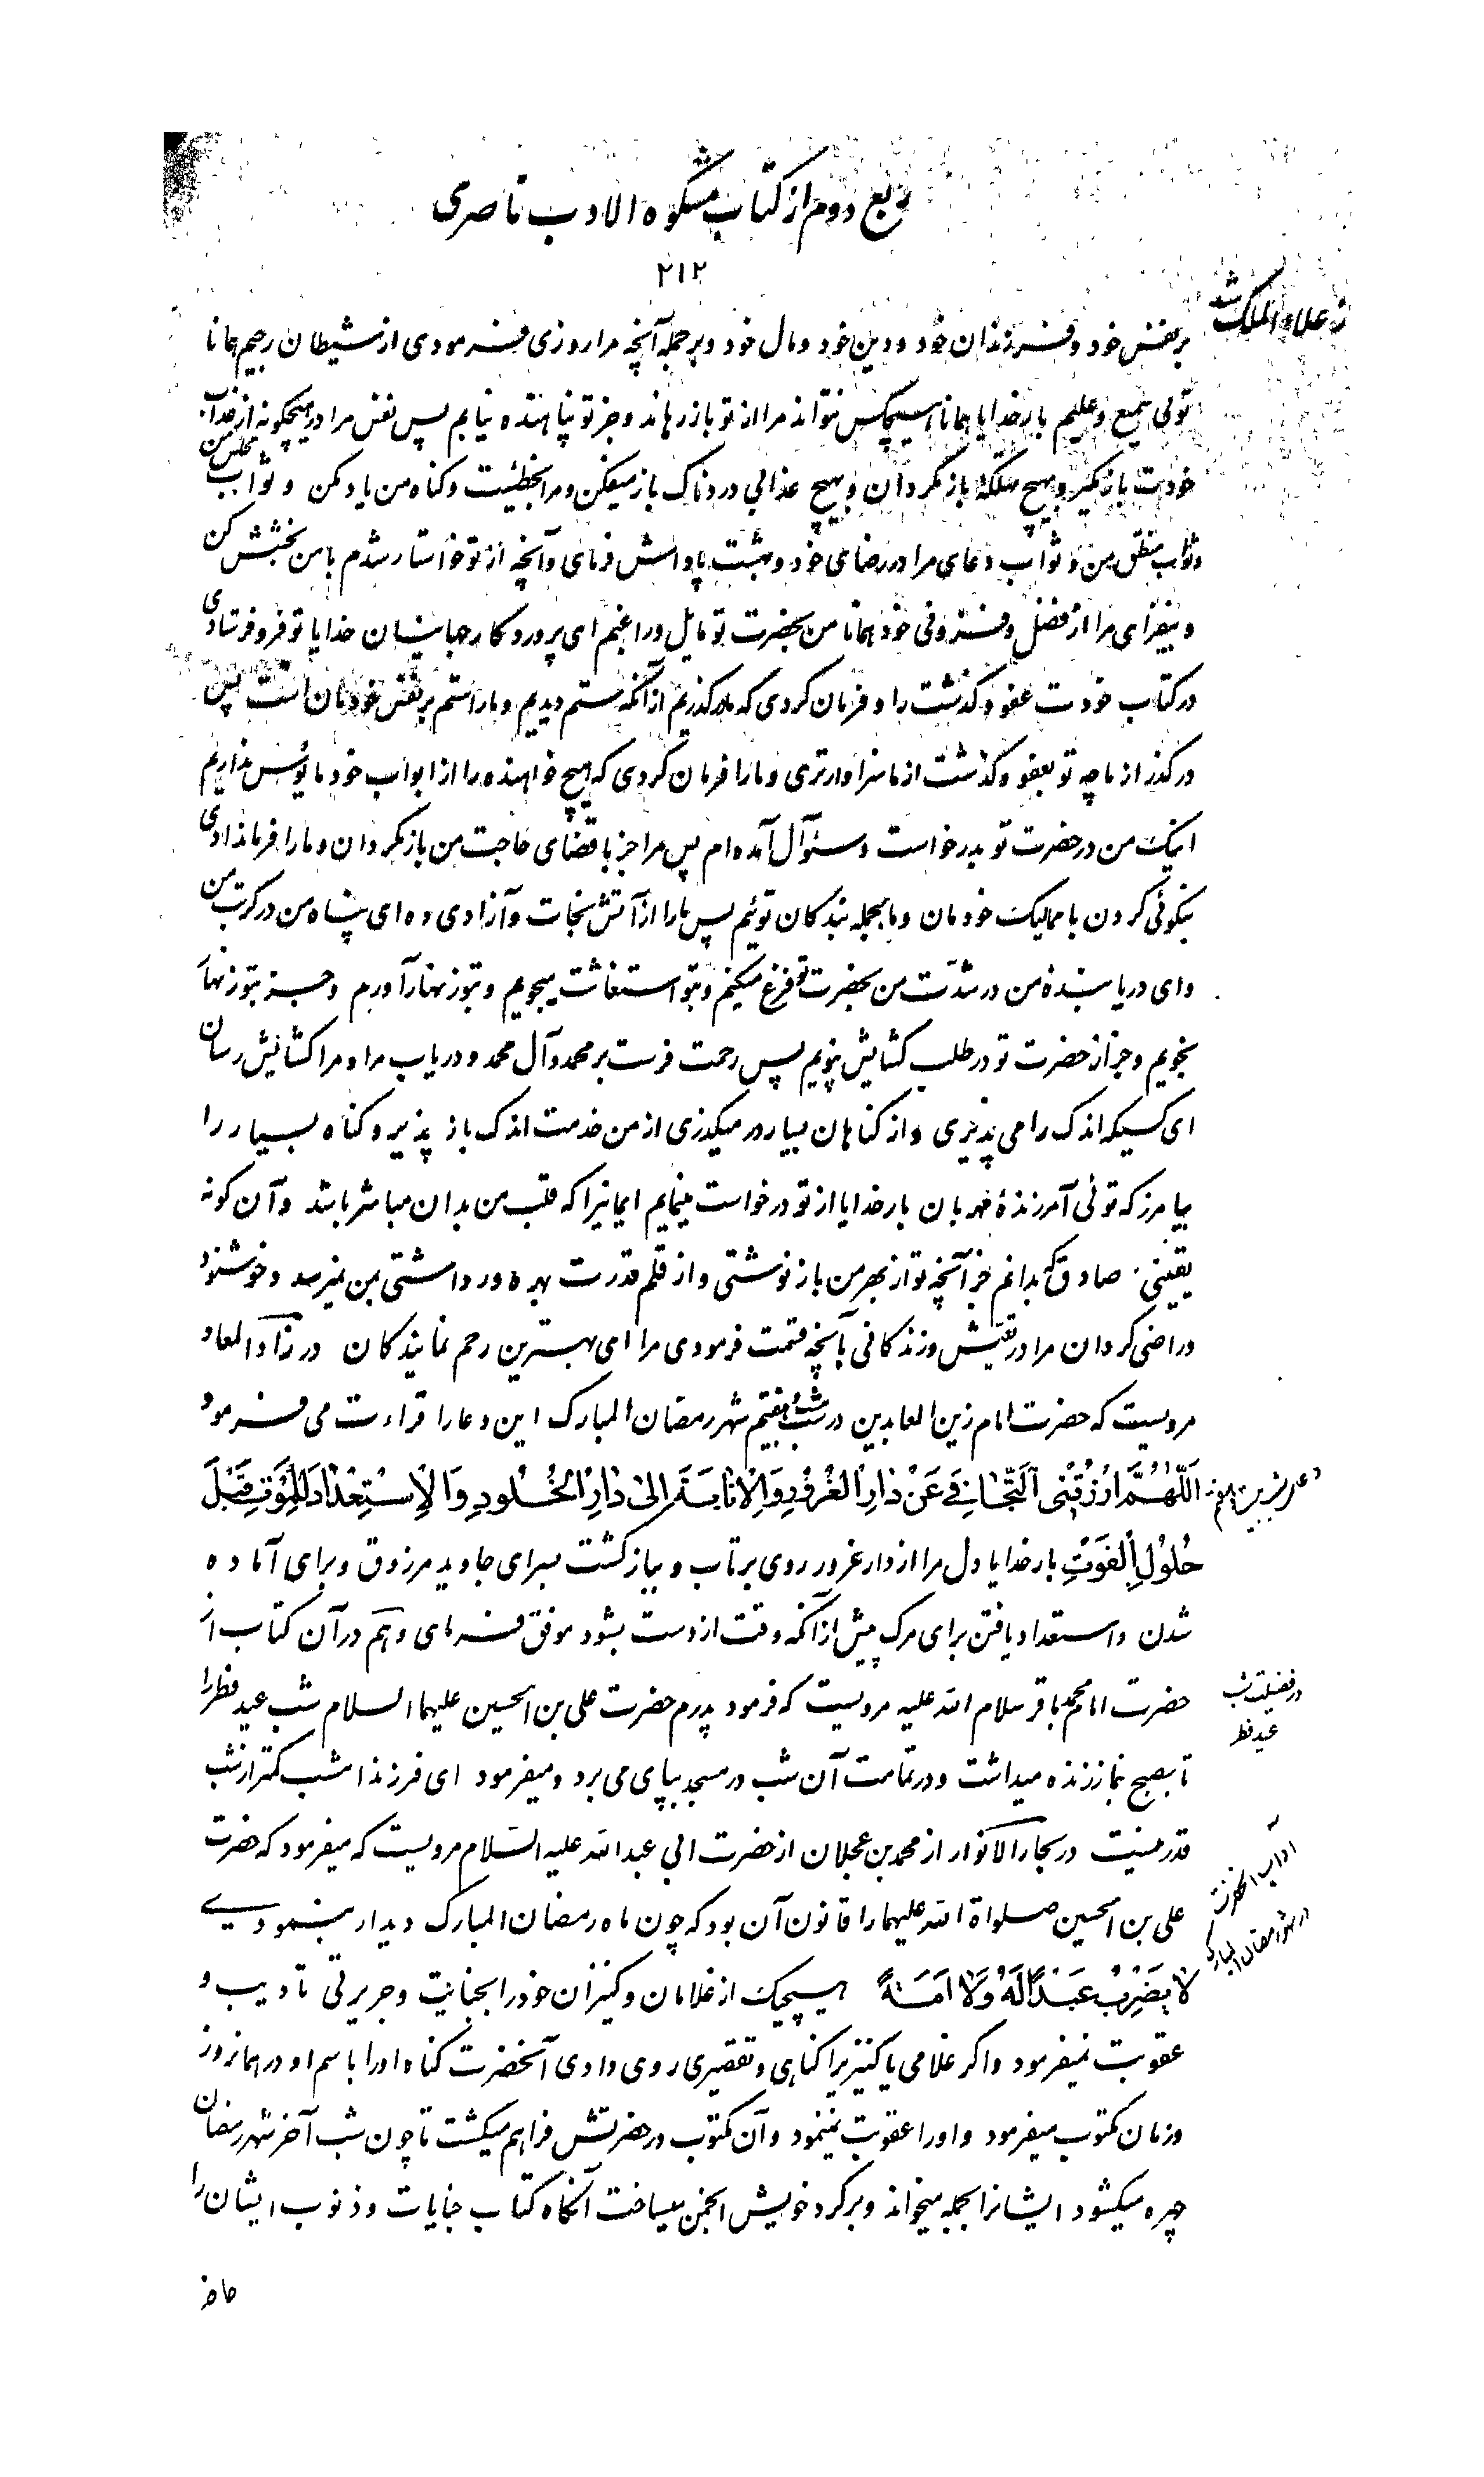 ربع دوم از کتاب مشکوه الادب ناصری
۲۱۲
بر نفس خود و فرزندان خود و دین خود و مال خود و بر جمله آنچه مرا روزی فرمودی از شیطان رجیم همانا
توئی سمیع و علیم بار خدایا همانا هیچکس نتواند مرا از تو باز رهاند و جز تو پناهنده نیابم پس نفس مرا در هیچگونه از عذاب
خودت باز مگیر و بهیچ مهلکهٔ باز مگردان و بهیچ عذابی دردناک باز میفکن و مرا بخطیئت و کناه من یاد مکن و ثواب مجلس من
و ثواب منطق من و ثواب دعای مرا در رضای خود و بهشت پاداش فرمای و آنچه از تو خواستار شدم با من بخشش کن
و بیفزای مرا از فضل و فزونی خود همانا من بحضرت تو مایل و راغبم ای پروردکار جهانیان خدایا تو فرو فرستادی
در کتاب خودت عفو و کذشت را و فرمان کردی که در کذریم از آنکه ستم دیدیم و ما را ستم بر نفس خودمان است پس
در کذر از ما چه تو بعفو و کذشت از ما سزاوارتری و ما را فرمان کردی که هیچ خواهنده را از ابواب خود مایوس نداریم
اینک من در حضرت تو بدرخواست و سئوال آمده‌ام پس مرا جز باقضای حاجت من باز مگردان و ما را فرمان دادی
بنکوئی کردن با ممالیک خودمان و ما بجمله بندکان توئیم پس ما را از آتش نجات و آزادی ده ای پناه من در کربت من
و ای دریابنده من در شدّت من بحضرت تو فزع میکنم و بتو استغاثت میجویم و بتو زنهار آورم و جز بتو زنهار
نجویم و جز از حضرت تو در طلب کشایش نپویم پس رحمت فرست بر محمد و آل محمد و دریاب مرا و مرا کشایش رسان
ای کسیکه اندک را می پذیری و از کناهان بسیار در میکذری از من خدمت اندک باز پذیر و کناه بسیار را
بیامرز که توئی آمرزندهٔ مهربان بار خدایا از تو درخواست مینمایم ایمانیرا که قلب من بدان مباشر باشد و آن کونه
یقینی صادق که بدانم جز آنچه تو از بهر من باز نوشتی و از قلم قدرت بهره ور داشتی بمن نمیرسد و خوشنود
و راضی کردان مرا در تعیّش و زندکانی بآنچه قسمت فرمودی مرا ای بهترین رحم نمایندکان در زاد المعاد
مرویست که حضرت امام زین العابدین در شب بیست و هفتم شهر رمضان المبارک این دعا را قراءت می فرمود
اَللّهُمَّ ارْزُقْنِی اَلتَّجافِیَ عَنْ دارِ الْغُرُورِ وَالْاِنابَةَ اِلی دارِ الْخُلُودِ وَالْاِسْتِعْدادَ لِلْمَوْتِ قَبْلَ
حُلُولِ الْفَوْتِ بار خدایا دل مرا از دار غرور روی برتاب و بباز کشت بسرای جاوید مرزوق و برای آماده
شدن و استعداد یافتن برای مرک پیش از آنکه وقت از دست بشود موفق فرمای و هم در آن کتاب از
حضرت امام محمد باقر سلام الله علیه مرویست که فرمود پدرم حضرت علی بن الحسین علیهما السلام شب عید فطر را
تا بصبح بنماز زنده میداشت و در تمامت آن شب در مسجد بپای می برد و میفرمود ای فرزند امشب کمتر از شب
قدر نیست در بحار الانوار از محمد بن عجلان از حضرت ابی عبد الله علیه السّلام مرویست که میفرمود که حضرت
علی بن الحسین صلواة الله علیهما را قانون آن بود که چون ماه رمضان المبارک دیدار بنمودے
لا یَضْرِبُ عَبْداً لَهُ وَلا اَمَةً هیچیک از غلامان و کنیزان خود را بجنایت و جریرتی تادیب و
عقوبت نمیفرمود و اکر غلامی یا کنیزیرا کناهی و تقصیری روی دادی آنحضرت کناه او را با سم او در همانروز
و زمان مکتوب میفرمود و او را عقوبت نمینمود و آن مکتوب در حضرتش فراهم میکشت تا چون شب آخر شهر رمضان
چهره میکشود ایشانرا بجمله میخواند و بر کرد خویش انجمن میساخت آنکاه کتاب جنایات و ذنوب ایشان را
حاضر
علاء الملک
در فضیلت شب
عید فطر
آداب آنحضرت
در شهر رمضان المبارک